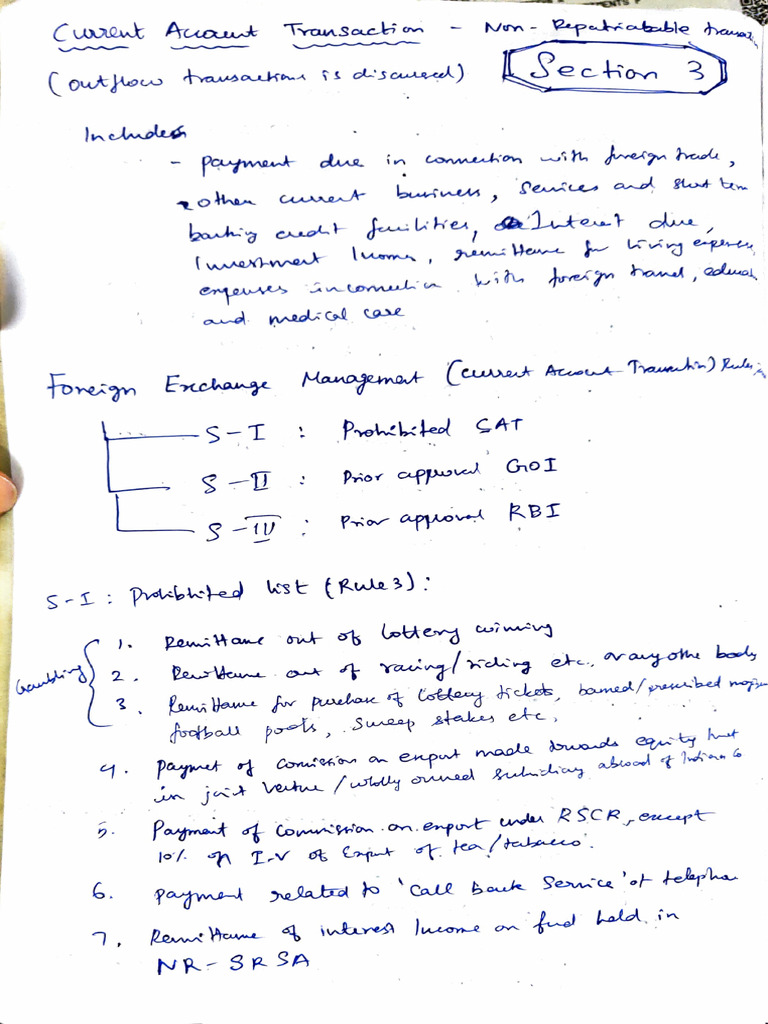 Current Account Transaction - Non-Repatriabable
(outflow transactions is discussed) Section 3
Includes
- payment due in connection with foreign trade,
other current business, services and short term
banking credit facilities, Interest due,
Investment Income, remittane for living expenses
expenses inconnection with foreign travel,
and medical case
Foreign Exchange Management (Current Account Transaction) Rules
S-I : Prohibited CAT
S-II : Prior approval GoI
S-III : Prior approval RBI
S-I : Prohibhited list (Rule 3):
Gambling
1. Remittane out of lottery winning
2. Remittane out of racing/riding etc., or any othe body
3. Remittame for purchase of lottery tickets, banned/prescribed
football pools, sweep stakes etc,
4. paymet of comission on export made towards equity
in joint vertue/wholly owned subsidiary abroad of Indian Co
5. Payment of Commission on export under RSCR, except
10% of I-V of Export of tea/tabacco.
6. payment related to 'call back service' of telephone
7. Remittame of interest Income on fund held in
NR-SRSA